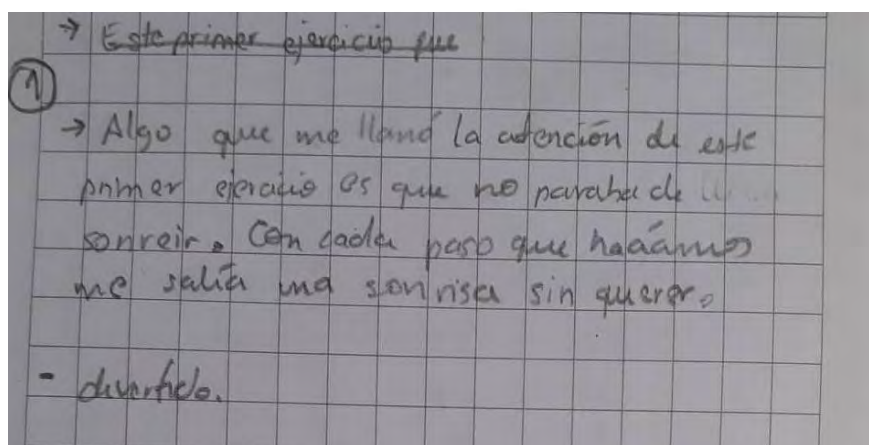 → Este primer ejercicio que
1
→ Algo que me llamó la atención de este
primer ejercicio es que no paraba de
sonreir. Con cada paso que hacíamos
me salía una sonrisa sin querer.
- divertido.